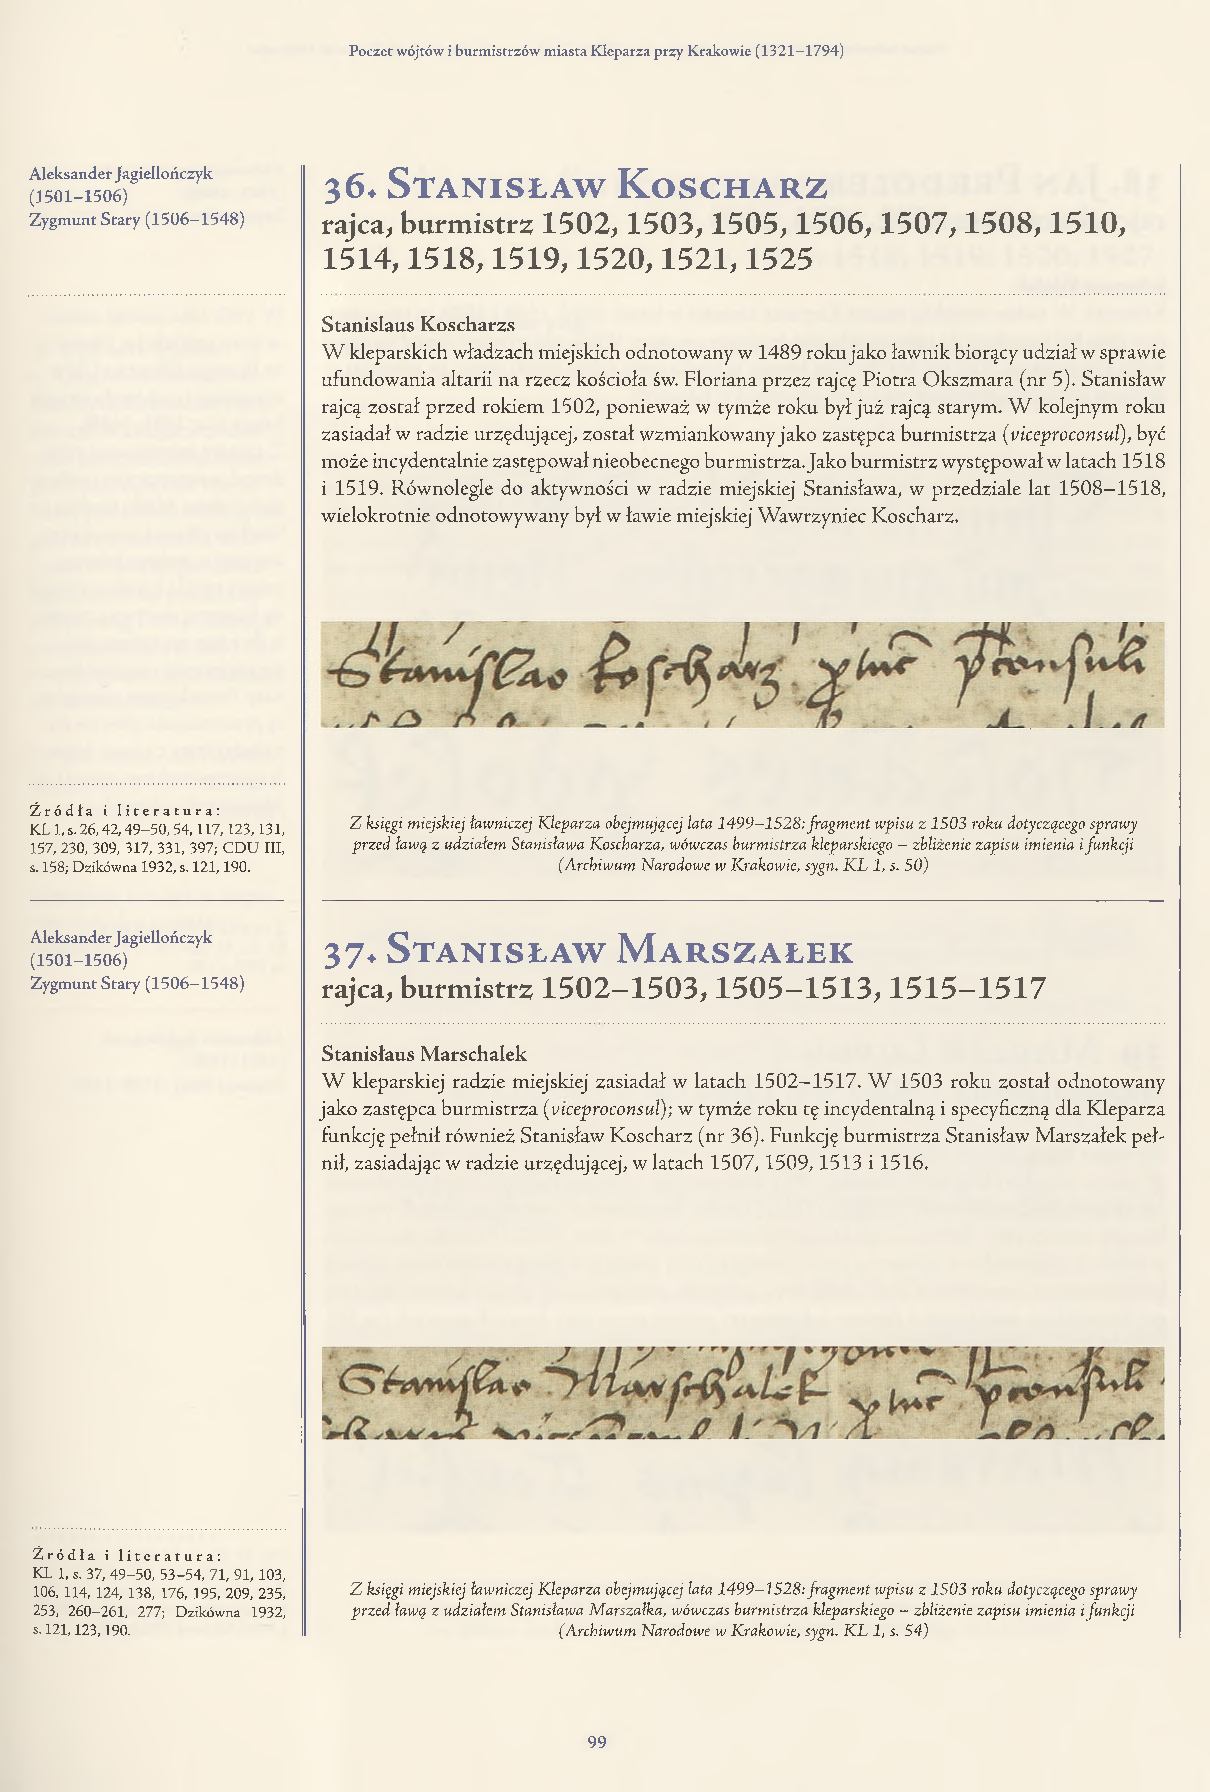 Poczet wójtów i burmistrzów miasta Kleparza przy Krakowie (1321–1794)
Aleksander Jagiellończyk
(1501–1506)
Zygmunt Stary (1506–1548)
36. Stanisław Koscharz
rajca, burmistrz 1502, 1503, 1505, 1506, 1507, 1508, 1510,
1514, 1518, 1519, 1520, 1521, 1525
Stanislaus Koscharzs
W kleparskich władzach miejskich odnotowany w 1489 roku jako ławnik biorący udział w sprawie
ufundowania altarii na rzecz kościoła św. Floriana przez rajcę Piotra Okszmara (nr 5). Stanisław
rajcą został przed rokiem 1502, ponieważ w tymże roku był już rajcą starym. W kolejnym roku
zasiadał w radzie urzędującej, został wzmiankowany jako zastępca burmistrza (viceproconsul), być
może incydentalnie zastępował nieobecnego burmistrza. Jako burmistrz występował w latach 1518
i 1519. Równolegle do aktywności w radzie miejskiej Stanisława, w przedziale lat 1508–1518,
wielokrotnie odnotowywany był w ławie miejskiej Wawrzyniec Koscharz.
Stanislao Koscharz
Źródła i literatura:
KL 1, s. 26, 42, 49–50, 54, 117, 123, 131,
157, 230, 309, 317, 331, 397; CDU III,
s. 158; Dzikówna 1932, s. 121, 190.
Z księgi miejskiej ławniczej Kleparza obejmującej lata 1499–1528: fragment wpisu z 1503 roku dotyczącego sprawy
przed ławą z udziałem Stanisława Koscharza, wówczas burmistrza kleparskiego – zbliżenie zapisu imienia i funkcji
(Archiwum Narodowe w Krakowie, sygn. KL 1, s. 50)
Aleksander Jagiellończyk
(1501–1506)
Zygmunt Stary (1506–1548)
37. Stanisław Marszałek
rajca, burmistrz 1502–1503, 1505–1513, 1515–1517
Stanisłaus Marschalek
W kleparskiej radzie miejskiej zasiadał w latach 1502–1517. W 1503 roku został odnotowany
jako zastępca burmistrza (viceproconsul); w tymże roku tę incydentalną i specyficzną dla Kleparza
funkcję pełnił również Stanisław Koscharz (nr 36). Funkcję burmistrza Stanisław Marszałek peł-
nił, zasiadając w radzie urzędującej, w latach 1507, 1509, 1513 i 1516.
Stanislao Marschalek
Źródła i literatura:
KL 1, s. 37, 49–50, 53–54, 71, 91, 103,
106, 114, 124, 138, 176, 195, 209, 235,
253, 260–261, 277; Dzikówna 1932,
s. 121, 123, 190.
Z księgi miejskiej ławniczej Kleparza obejmującej lata 1499–1528: fragment wpisu z 1503 roku dotyczącego sprawy
przed ławą z udziałem Stanisława Marszałka, wówczas burmistrza kleparskiego – zbliżenie zapisu imienia i funkcji
(Archiwum Narodowe w Krakowie, sygn. KL 1, s. 54)
99